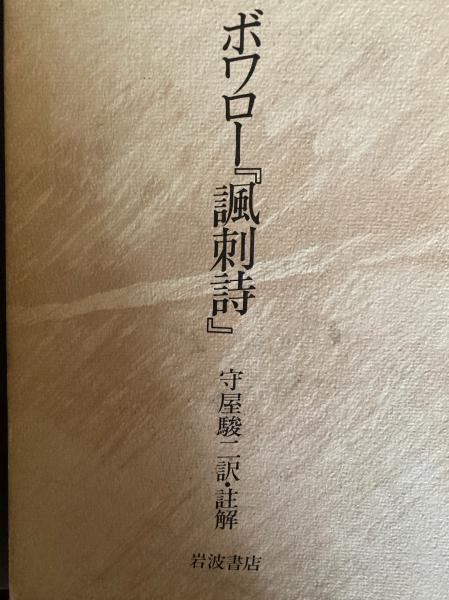 ボワロー『諷刺詩』
守屋駿二訳・註解
岩波書店